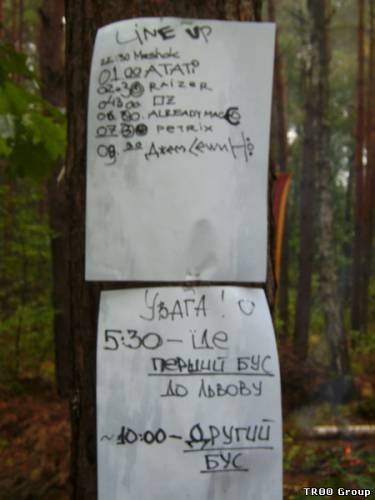 LINE UP
22:30 Meshok
01.00 АТАТі
02.30 RAIZER
04.00 OZ
ALREADYMAGE
07.30 PETRIX
09.00 Джем
УВАГА!
5:30 – ЇДЕ
ПЕРШИЙ БУС
ДО ЛЬВОВУ
~10:00 – ДРУГИЙ
БУС
TROO Group